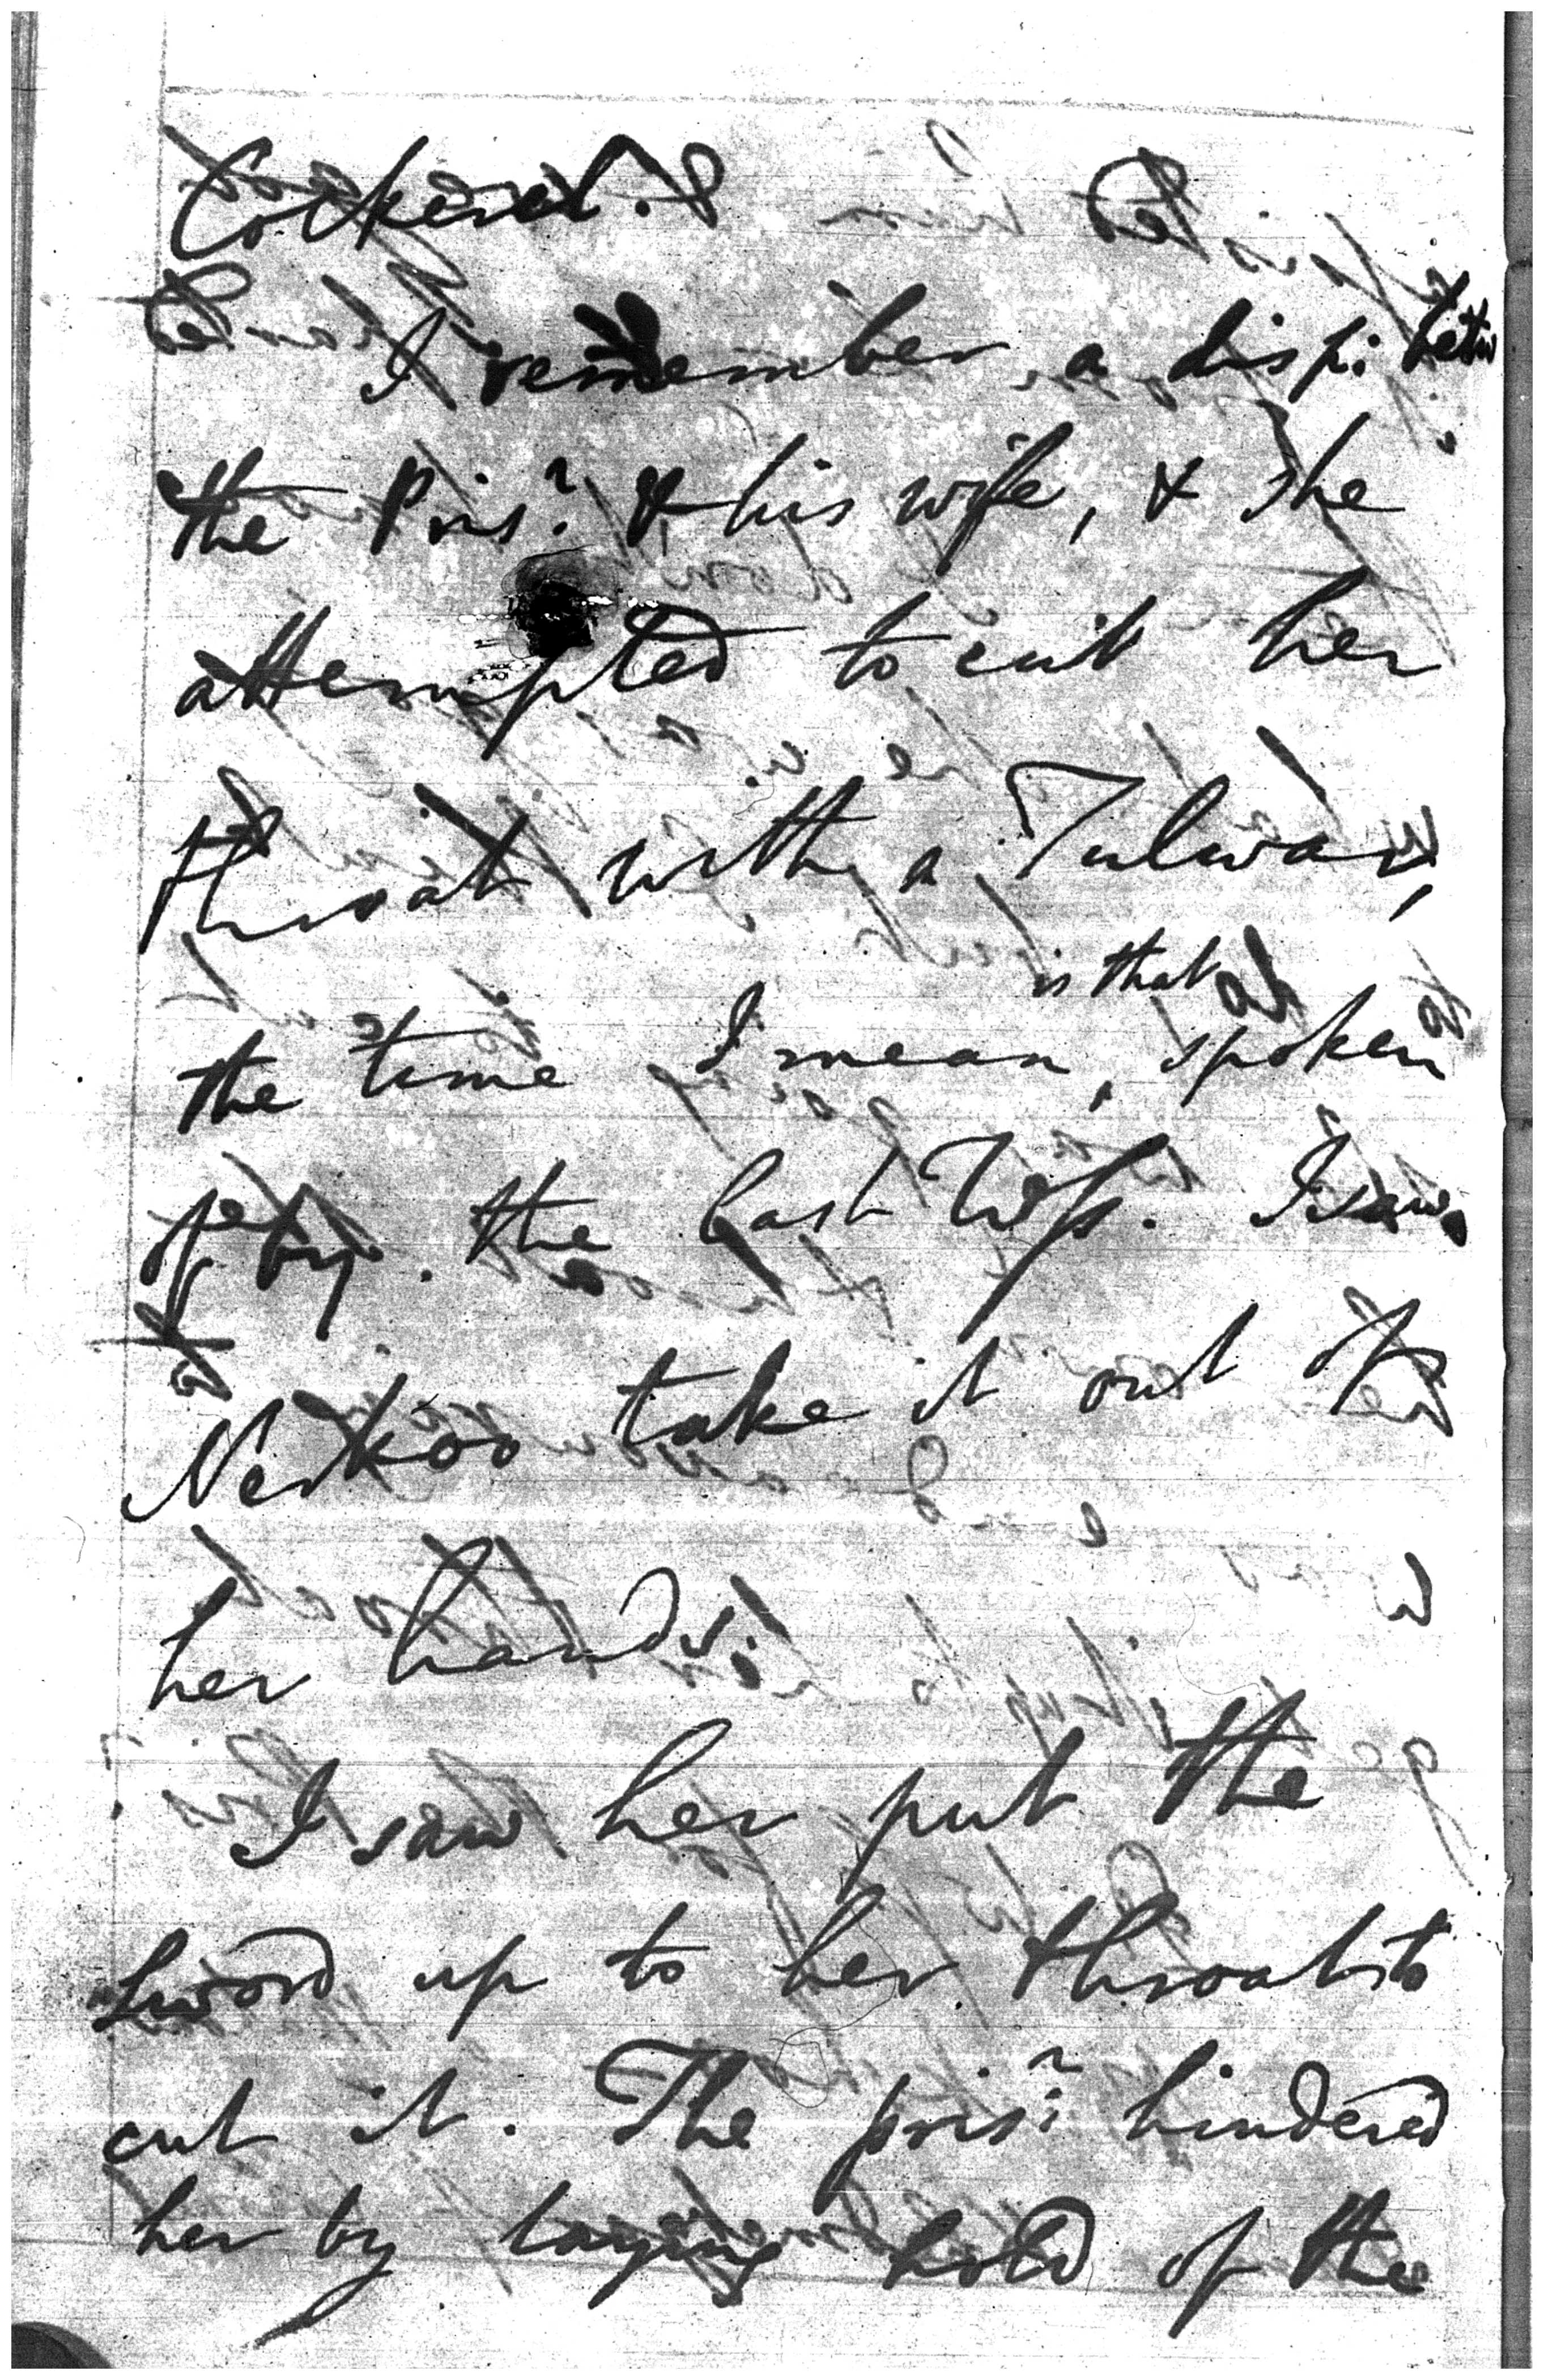 Cockerel. &
I remember a disp: betw
the Pris.r & his wife, & she
attempted to cut her
throat with a Tulwar,
is that
the time I mean, spoken
of by the last Wss. I saw
take it out of
her hands.
I saw her put the
sword up to her throat to
cut it. The pris.r hindered
her by laying hold of the